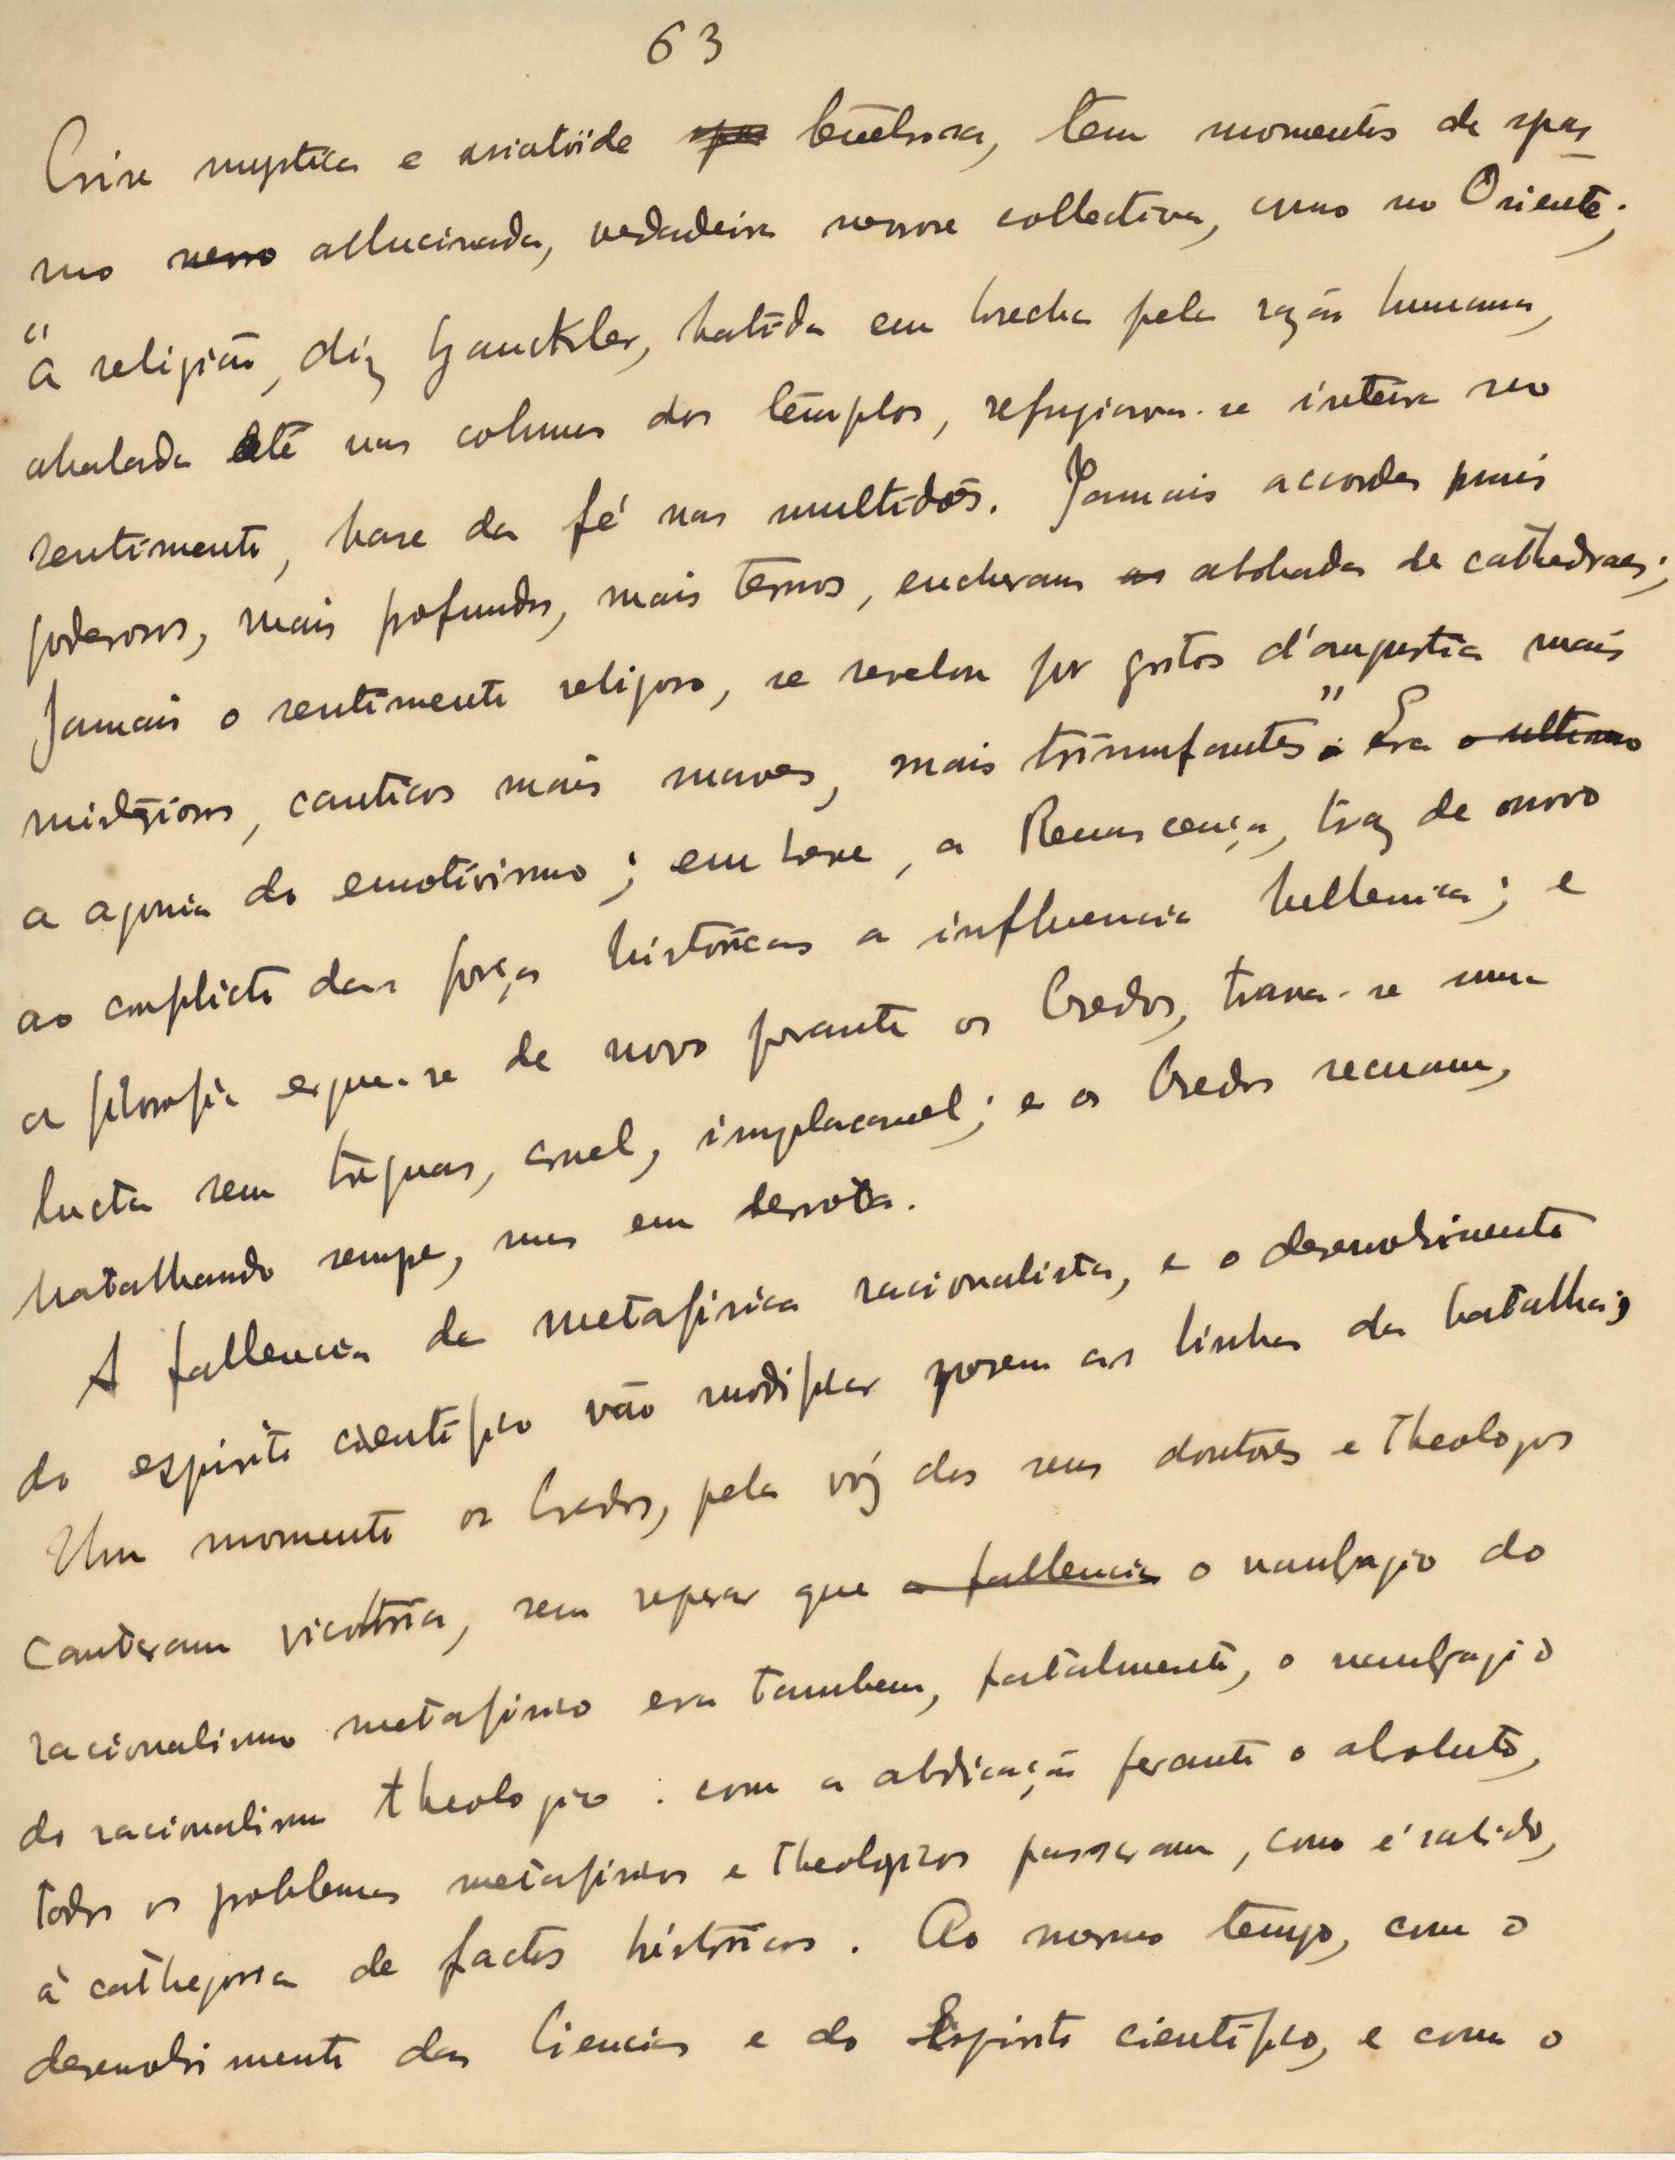 63
Crise mystica e asiatoïde tem momentos de spas
mo allucinada, verdadeira nevrose collectiva, como no Oriente;
"a religião, diz Gauckler, batida em brecha pela razão humana,
abalada até nas colunas dos templos, refugiava-se inteira no
sentimento, base da fé nas multidões. Jamais accordes mais
poderosos, mais profundos, mais ternos, encheram as abobadas de cathedraes;
Jamais o sentimento religioso, se revelou por gritos d'angustia mais
canticos mais suaves, mais triunfantes". Era o ultimo
a agonia do emotivismo; em breve, a Renascença, traz de novo
ao conflicto das forças históricas a influencia hellenica; e
a filosofia ergue-se de novo perante os Credos, trava-se uma
lucta sem tréguas, cruel, implacavel; e os Credos recuam,
batalhando sempre, mas em derrota.
A fallencia da metafisica racionalista, e o desenvolvimento
do espirito cientifico vão modificar porem as linhas da batalha;
Um momento os Credos, pela vóz dos seus doutores e theologos
cantaram victoria, sem reparar que a fallencia o naufragio do
racionalismo metafisico era tambem, fatalmente, o naufragio
do racionalismo theologico: com a abdicação perante o absoluto,
todos os problemas metafisicos e theologicos passaram, como é sabido,
à cathegoria de factos históricos. Ao mesmo tempo, com o
desenvolvimento das Ciencias e do Espirito cientifico, e com o